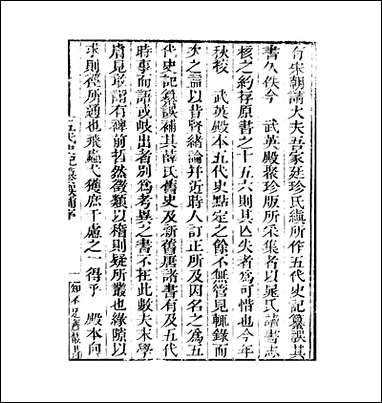 有宋朝請大夫吾家廷珍氏縝所作五代史記纂誤其
書久佚今　武英殿聚珍版所采集者以晁氏讀書志
核之約存原書之十五六則其亾失者為可惜也今年
秋校　武英殿本五代史點定之餘不無管見輒錄而
次之論以昔賢緒論并近時人訂正所及因名之為五
代史記纂誤補其薛氏舊史及新舊唐諸書有及五代
時事而語或岐出者別為考異之書不在此數夫末學
膚見敢謂有裨前哲然徵類以稽則疑所叢也緣隙以
求則徑所通也飛蟲弋獲庶千慮之一得乎　殿本向
五代史記纂誤補序
一
知不足齋叢書